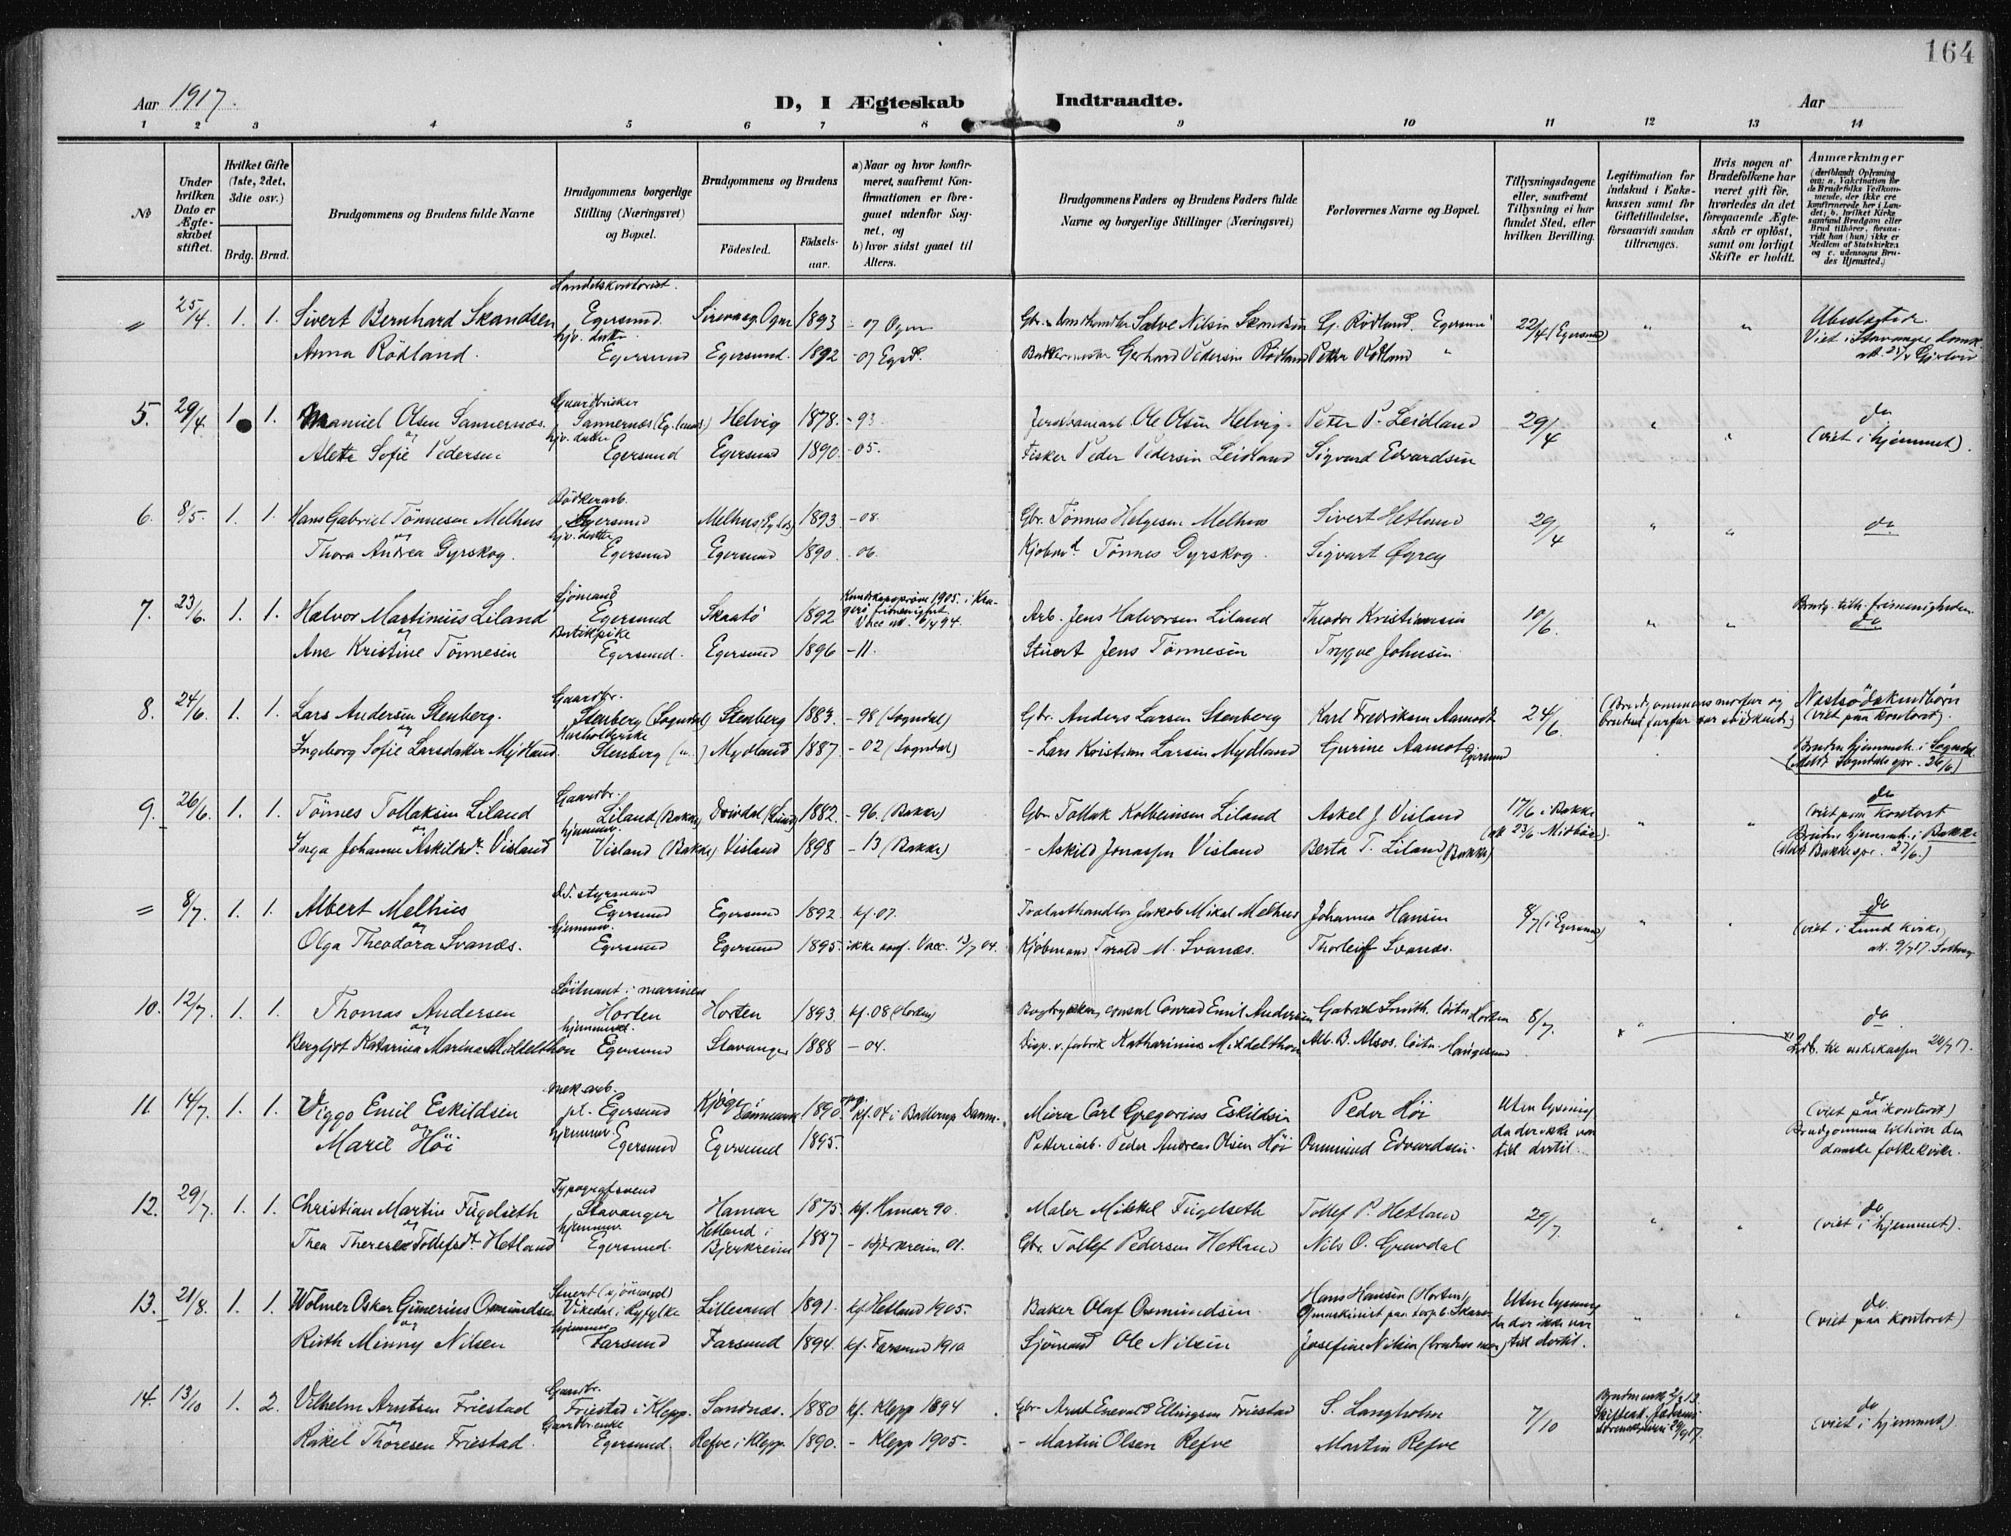 164
Aar 1917.
D, I Ægteskab Indtraadte.
Aar
1 2 3 4 5 6 7 8 9 10 11 12 13 14
No
Under hvilken Dato er Ægteskabet stiftet.
Hvilket Gifte (1ste, 2det, 3die osv.)
Brdg. Brud.
Brudgommens og Brudens fulde Navne
Brudgommens borgerlige Stilling (Næringsvei) og Bopæl.
Brudgommens og Brudens
Fødested. Fødselsaar.
a) Naar og hvor konfirmeret, saafremt Konfirmationen er foregaaet udenfor Sognet, og
b) hvor sidst gaaet til Alters.
Brudgommens Faders og Brudens Faders fulde Navne og borgerlige Stillinger (Næringsvei)
Forlovernes Navne og Bopæl.
Tillysningsdagene eller, saafremt Tillysning ei har fundet Sted, efter hvilken Bevilling.
Legitimation for Indskud i Enkekassen samt for Giftetilladelse, forsaavidt saadan tiltrænges.
Hvis nogen af Brudefolkene har været gift før, hvorledes da det foregaaende Ægteskab er opløst, samt om lovligt Skifte er holdt.
Anmærkninger (deriblandt Oplysning om: a. Vakcination for de Brudefolks Vedkommende, der ikke ere konfirmerede her i Landet; b. hvilket Kirkesamfund Brudgom eller Brud tilhører, forsaavidt han (hun) ikke er Medlem af Statskirken og c. udensogns Brudes Hjemsted.)
Handelskontorist.
" 25/4. 1. 1. Sivert Bernhard Skandsen Egersund Sirevaag Ogn 1893 - 07 Ogn Salve Nilsen Skandsen G. Rödland, Egersund 22/4 (Egersund) " " Ubeslagtede.
hjv. datter
Anna Rödland. Egersund Egersund. 1892 - 07 Egsd. Gerhard Pedersen Rödland Petter Rödland " Viet i Stavanger
Gaardbruker
5. 29/4. 1. 1. Manuel Olsen Sannernæs. Sannernæs Helvig 1878. - 93 Ole Olsen Helvig - Peter P. Leidland 29/4 " " do
og hjv. datter (viet i hjemmet).
Alette Sofie Pedersen Egersund Egersund 1890. - 05. Fisker Peder Pedersen Leidland Sigvard Edvardsen
Bödkerarb.
6. 8/5. 1. 1. Hans Gabriel Tönnesen Melhus Egersund Melhus 1893 - 08. Gbr. Tönnes Helgesen Melhus Sivert Hetland 29/4 " " do
og hjv. datter
Thora Andrea Dyrskog. Egersund Egersund 1890. - 06. Kjöbmd. Tönnes Dyrskog. Sigvart Øgrey
Sjömand Kundskapspröve 1905. i Kragerö frimenighet
7. 23/6. 1. 1. Halvor Martinius Liland Egersund Skaatö 1892 Arb. Jens Halvorsen Liland Theodor Kristiansen 10/6. " " Brudg. tilh. frimenigheden. do
og Butikpike
Ane Kristine Tönnesen Egersund. Egersund 1896 - 11. Stuert Jens Tönnesen Trygve Johnsen
Gaardbr.
8. 24/6. 1. 1. Lars Andersen Stenberg. Stenberg (Sogndal) Stenberg 1883. - 98 (Sogndal) Gbr. Anders Larsen Stenberg Karl Fredriksen Aamodt 24/6 (Brudgommens morfar og brudens farfar var sødskend) Næstsödskendbörn (viet paa kontoret).
og Husholderske
Ingeborg Sofie Larsdatter Mydland Stenberg ( " ) Mydland 1887. - 02 (Sogndal) - Lars Kristian Larsen Mydland Gurine Aamot Egersund Bruden hjemmeh. i Sogndal. (Meldt Sogndals spr. 26/6)
Gaardbr.
9. 26/6. 1. 1. Tönnes Tollaksen Liland Liland (Bakke) (Lund) 1882. - 96. (Bakke) Gbr. Tollak Kolbeinsen Liland Askel J. Visland 17/6 i Bakke " " do (viet paa kontoret
og hjemmev.
Inga Johanne Askildsdr. Visland Visland (Bakke) Visland 1898 - 13 (Bakke) - Askild Jonassen Visland Berta T. Liland (Bakke) Bruden hjemmeh. i Bakke (Meldt Bakke spr. 27/6.)
D.S. styrmand
" 8/7. 1. 1. Albert Melhus Egersund Egersund 1892. kf. 07. Trælasthandler Jakob Mikal Melhus Johanna Hansen 8/7 (i Egersund) " do
og hjemmev. (viet i Lund kirke,
Olga Theodora Svanæs. Egersund Egersund 1895. ikke konf. Vacc. 13/7 04. Kjöbmand Torald M. Svanæs. Thorleif Svanæs.
Löitnant i marinen
10. 12/7. 1. 1. Thomas Andersen Horten Horten 1893. kf. 08 (Horten) consul Conrad Emil Andersen Gabriel Smith Löitn. Horten 8/7. do
og hjemmev.
Bergljot Katarina Marina Middelthon Egersund Stavanger 1888 - 04. Disp. v. fabrik Katharinius Middelthon Alb. B. Alsos. Löitn. Haugesund
mek. arb.
11. 14/7. 1. 1. Viggo Emil Eskildsen pt. Egersund Kjøge i Danmark 1890 kf. 04 i Danm. Meier Carl Gregorius Eskildsen Peder Höi Uten lysning da der ikke var tid dertil. do (viet paa kontoret)
og hjemmev. Brudgommen tilhörer den danske folkekirke.
Marie Höi Egersund Egersund 1895. Potteriarb. Peder Andreas Olsen Höi Osmund Edvardsen.
Typografsvend
12. 29/7. 1. 1. Christian Martin Fugelseth Stavanger Hamar 1875 kf. Hamar 90. Maler Mikkel Fugelseth Tollef P. Hetland 29/7. " " do
og hjemmev. (viet i hjemmet).
Thea Therese Tollefsdr. Hetland Egersund. Hetland i Bjerkreim 1887 - Bjerkreim 01. Gbr. Tollef Pedersen Hetland Nils O. Gravdal
Stuert (sjömand)
13. 21/8. 1. 1. Wolmer Oskar Gunerius Osmundsen Vikedal i Ryfylke Lillesand 1891. kf. Hetland 1905. Baker Olaf Osmundsen Hans Hansen (Horten) Uten lysning da der ikke var tid dertil. " " do.
og hjemmev. (viet paa kontoret)
Ruth Minny Nilsen Farsund Farsund 1894. kf. Farsund 1910 Sjömand Ole Nilsen Josefine Nilsen (brudens mor)
Gaardbr.
14. 13/10 1. 2. Vilhelm Arntsen Friestad Friestad i Klepp. Sandnæs. 1880 kf. Klepp 1894. Gbr. Arnt Enevald Ellingsen Friestad S. Langholm 7/10 do
og Gaardbr.enke (viet i hjemmet)
Rakel Thoresen Friestad. Egersund. Refve i Klepp. 1890. - Klepp 1905. - Martin Olsen Refve Martin Refve